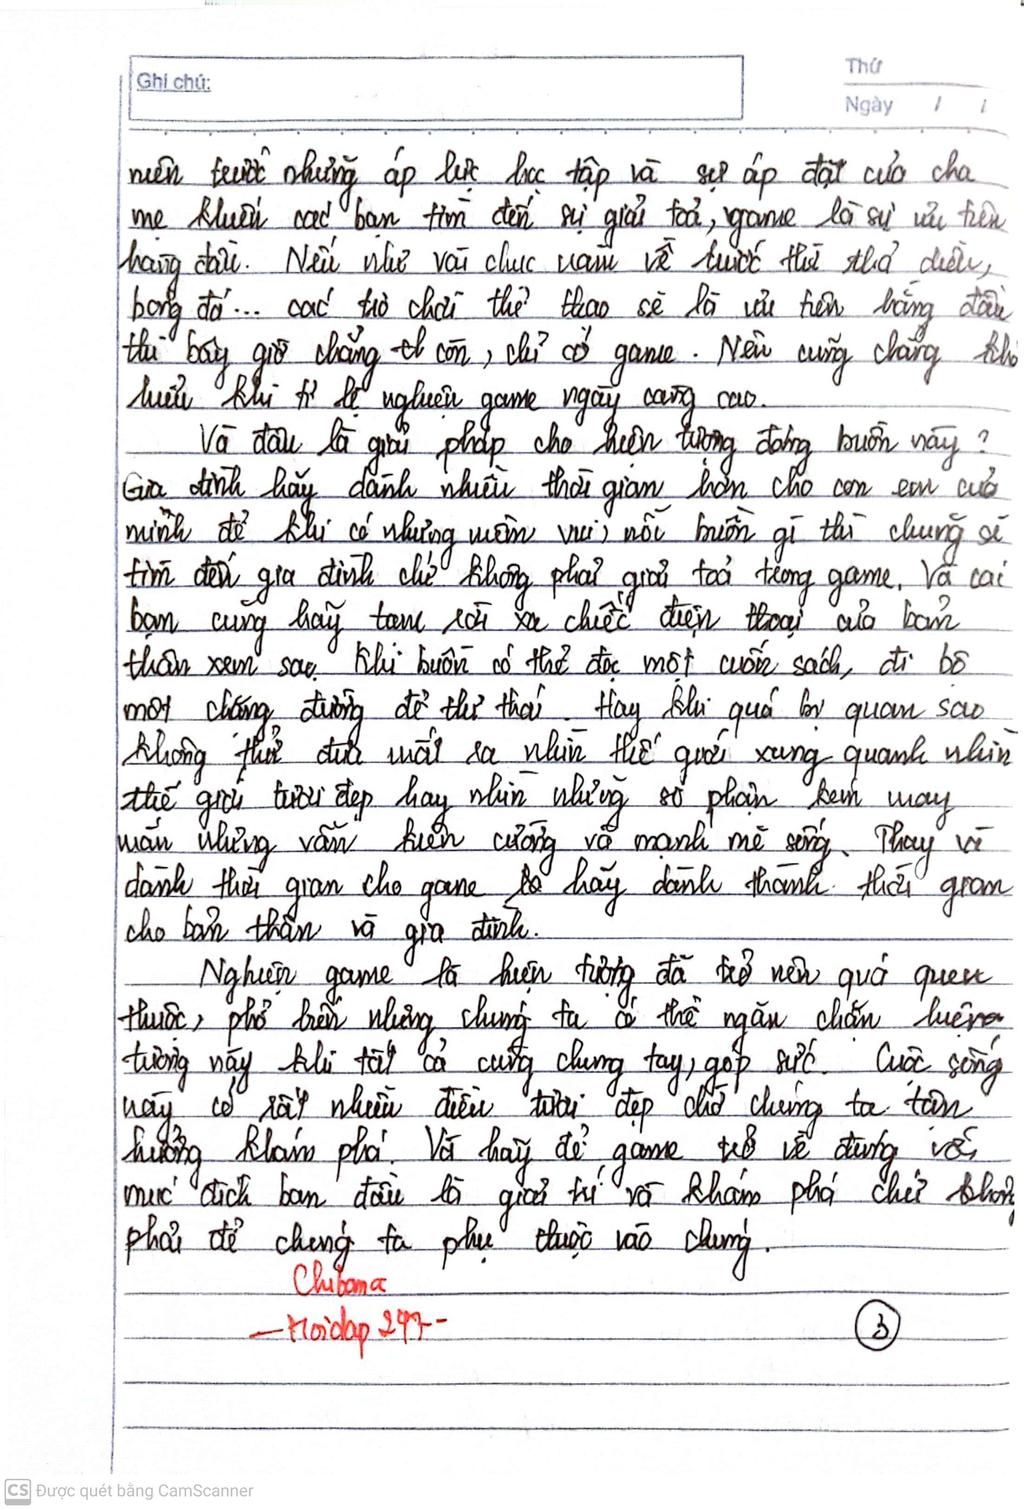 Ghi chú:
Thứ
Ngày / /
niên trước những áp lực học tập và sự áp đặt của cha
mẹ khiến các bạn tìm đến sự giải toả, game là sự ưu tiên
hàng đầu. Nếu như vài chục năm về trước thì thả diều,
bóng đá... các trò chơi thể thao sẽ là ưu tiên hàng đầu
thì bây giờ chẳng còn, chỉ có game. Nên cũng chẳng khó
hiểu khi tỉ lệ nghiện game ngày càng cao.
Và đâu là giải pháp cho hiện tượng đáng buồn này?
Gia đình hãy dành nhiều thời gian hơn cho con em của
mình để khi có những niềm vui, nỗi buồn gì thì chúng sẽ
tìm đến gia đình chứ không phải giải toả trong game. Và các
bạn cũng hãy tạm rời xa chiếc điện thoại của bản
thân xem sao. Khi buồn có thể đọc một cuốn sách, đi bộ
một chặng đường để thư thái. Hay khi quá lạc quan sao
không thử đưa mắt ra nhìn thế giới xung quanh nhìn
thế giới tươi đẹp hay nhìn những số phận kém may
mắn nhưng vẫn kiên cường và mạnh mẽ sống. Thay vì
dành thời gian cho game hãy dành thành thời gian
cho bản thân và gia đình.
Nghiện game là hiện tượng đã trở nên quá quen
thuộc, phổ biến nhưng chúng ta có thể ngăn chặn hiện
tượng này khi tất cả cùng chung tay, góp sức. Cuộc sống
này có rất nhiều điều tươi đẹp chờ chúng ta tận
hưởng khám phá. Và hãy để game trở về đúng với
mục đích ban đầu là giải trí và khám phá chứ không
phải để chúng ta phụ thuộc vào chúng.
Chibama
—Hoidap 247-
3
CS Được quét bằng CamScanner